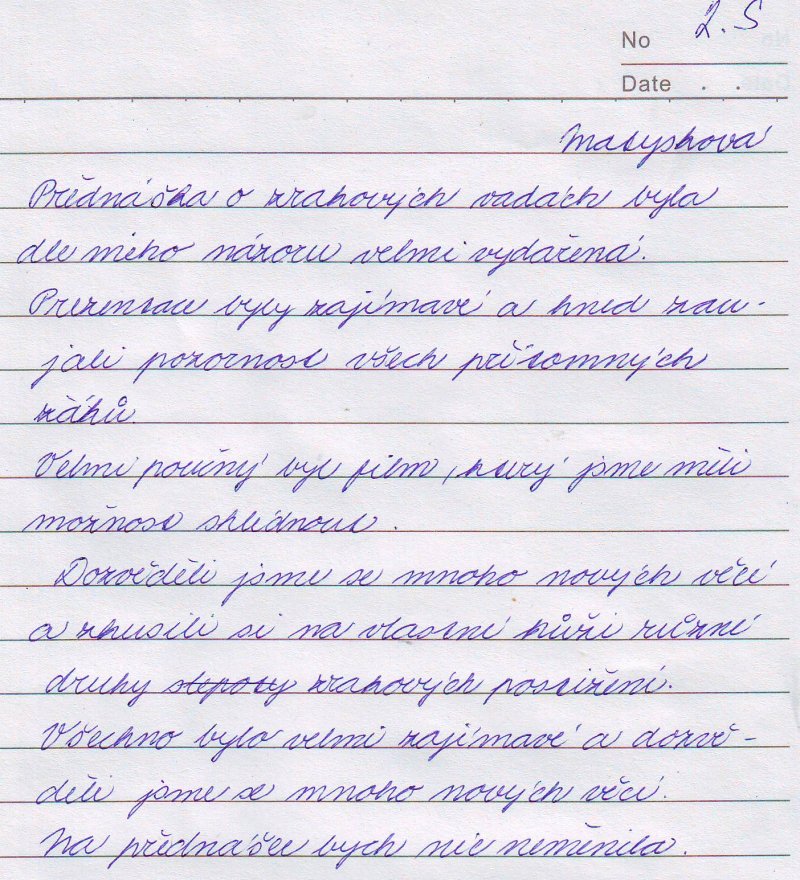 No 2.S
Date . .
Matysková
Přednáška o zrakových vadách byla
dle mého názoru velmi vydařená.
Prezentace byly zajímavé a hned zau-
jali pozornost všech přítomných
žáků.
Velmi poučný byl film, který jsme měli
možnost shlédnout.
Dozvěděli jsme se mnoho nových věcí
a zkusili si na vlastní kůži různé
druhy slepoty zrakových postižení.
Všechno bylo velmi zajímavé a dozvě-
děli jsme se mnoho nových věcí.
Na přednášce bych nic neměnila.